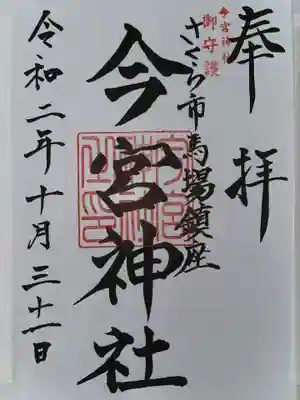 奉拝
今宮神社
御守護
さくら市馬場鎮座
今宮神社
令和二年十月三十一日